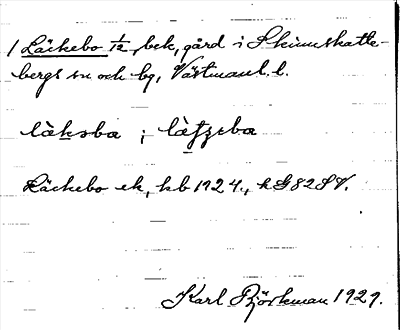 1 Läckebo 1/12, bek, gård i Skinnskatte-
bergs sn och bg, Västmanl. l.
làksba ; 
Läckebo ek, kb 1924., k G 82 SV.
Karl Björkman 1929.